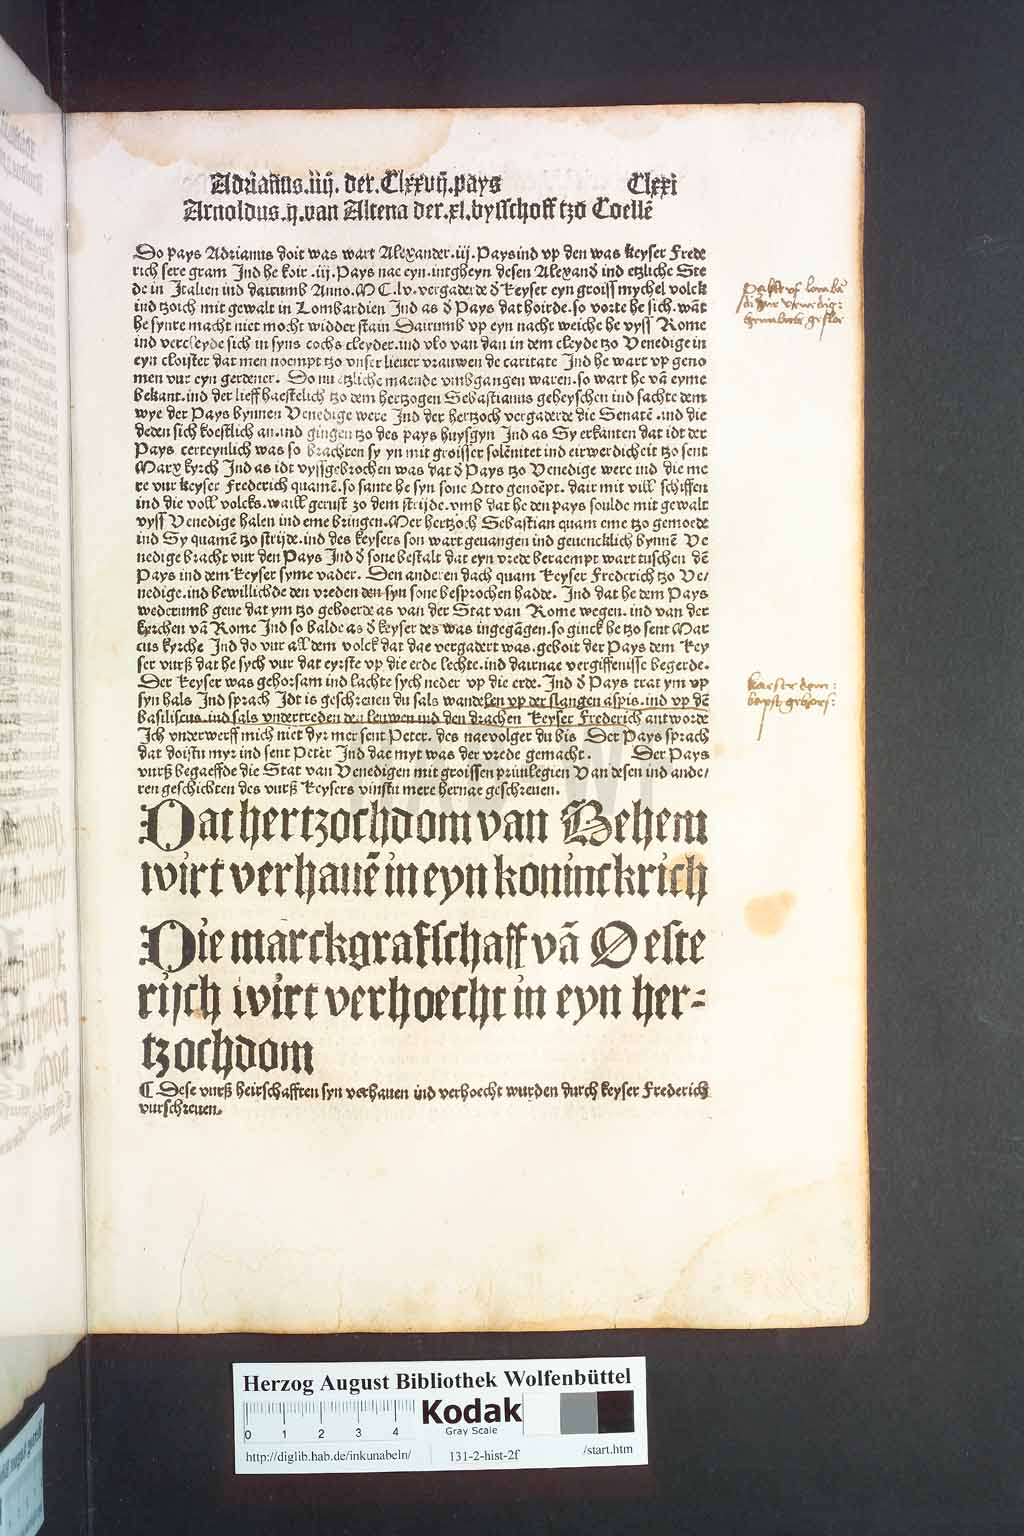 Adrianus.iiij. der. Clxxvij.pays Clxxi
Arnoldus.ij.van Altena der.xl.bysschoff tzo Coellē
Do pays Adrianus doit was wart Alexander.iij.Pays ind vp den was keyser Frede
rich sere gram Ind he koir.iij.Pays nae eyn.intgheyn desen Alexand ind etzliche Ste
de in Italien ind dairumb Anno.M C.lv.vergaderde d keyser eyn groiss mychel volck
ind tzoich mit gewalt in Lombardien Ind as d Pays dat hoirde.so vorte he sich.wāt
he synre macht niet mocht widder stain Dairumb vp eyn nacht weiche he vyss Rome
ind vercleyde sich in syns cochs cleyder.ind vlo van dan in dem cleyde tzo Venedige in
eyn cloister dat men noempt tzo vnser lieuer vrauwen de caritate Ind he wart vp geno
men vur eyn gerdener. Do nu etzliche maende vmbgangen waren.so wart he vā eyme
bekant.ind der lieff haestelich tzo dem hertzogen Sebastianus geheyschen ind sachte dem
wye der Pays bynnen Venedige were Ind der hertzoch vergaderde die Senatē.ind die
deden sich koestlich an.ind gingen tzo des pays huysgyn Ind as Sy erkanten dat idt der
Pays certeynlich was so brachten sy yn mit groisser solēnitet ind eirwerdicheit tzo sent
Marx kyrch Ind as idt vyssgebrochen was dat d Pays tzo Venedige were ind die me
re vur keyser Frederich quamē.so sante he syn sone Otto genoēpt.dair mit vill schiffen
ind die voll volcks.waill gerust zo dem strijde.vmb dat he den pays soulde mit gewalt
vyss Venedige halen ind eme bringen.Mer hertzoch Sebastian quam eme tzo gemoede
ind Sy quamē tzo strijde.ind des keysers son wart geuangen ind geuencklich bynnē Ve
nedige bracht vur den Pays Ind d sone bestalt dat eyn vrede beraempt wart tuschen dē
Pays ind dem keyser syme vader. Den anderen dach quam keyser Frederich tzo Ve/
nedige.ind bewillichde den vreden den syn sone besprochen hadde. Ind dat he dem Pays
wederumb geue dat ym tzo geboerde as van der Stat van Rome wegen.ind van der
kyrchen vā Rome Ind so balde as d keyser des was ingegāgen.so ginck he tzo sent Mar
cus kyrche Ind do vur all dem volck dat dae vergadert was.geboit der Pays dem key
ser vurß dat he sych vur dat eyrste vp die erde lechte.ind dairnae vergiffenisse begerde.
Der keyser was gehorsam ind lachte sych neder vp die erde.Ind d Pays trat ym vp
syn hals Ind sprach Idt is geschreuen du sals wandelen vp der slangen aspis.ind vp dē
basiliscus.ind sals vndertreden den leuwen ind den drachen keyser Frederich antworde
Ich vnderwerff mich niet dyr mer sent Peter.des naevolger du bis Der Pays sprach
dat doistu myr ind sent Peter Ind dae myt was der vrede gemacht. Der Pays
vurß begaeffde die Stat van Venedigen mit groissen priuilegien Van desen ind ande/
ren geschichten des vurß keysers vinstu mere hernae geschreuen.
Dat hertzochdom van Behem
wirt verhauē in eyn koninckrich
Die marckgrafschaff vā Oeste
rijch wirt verhoecht in eyn her-
tzochdom
¶ Dese vurß heirschafften syn verhauen ind verhoecht wurden durch keyser Frederich
vurschreuen.
Herzog August Bibliothek Wolfenbüttel
0 1 2 3 4
Kodak
Gray Scale
http://diglib.hab.de/inkunabeln/ 131-2-hist-2f /start.htm